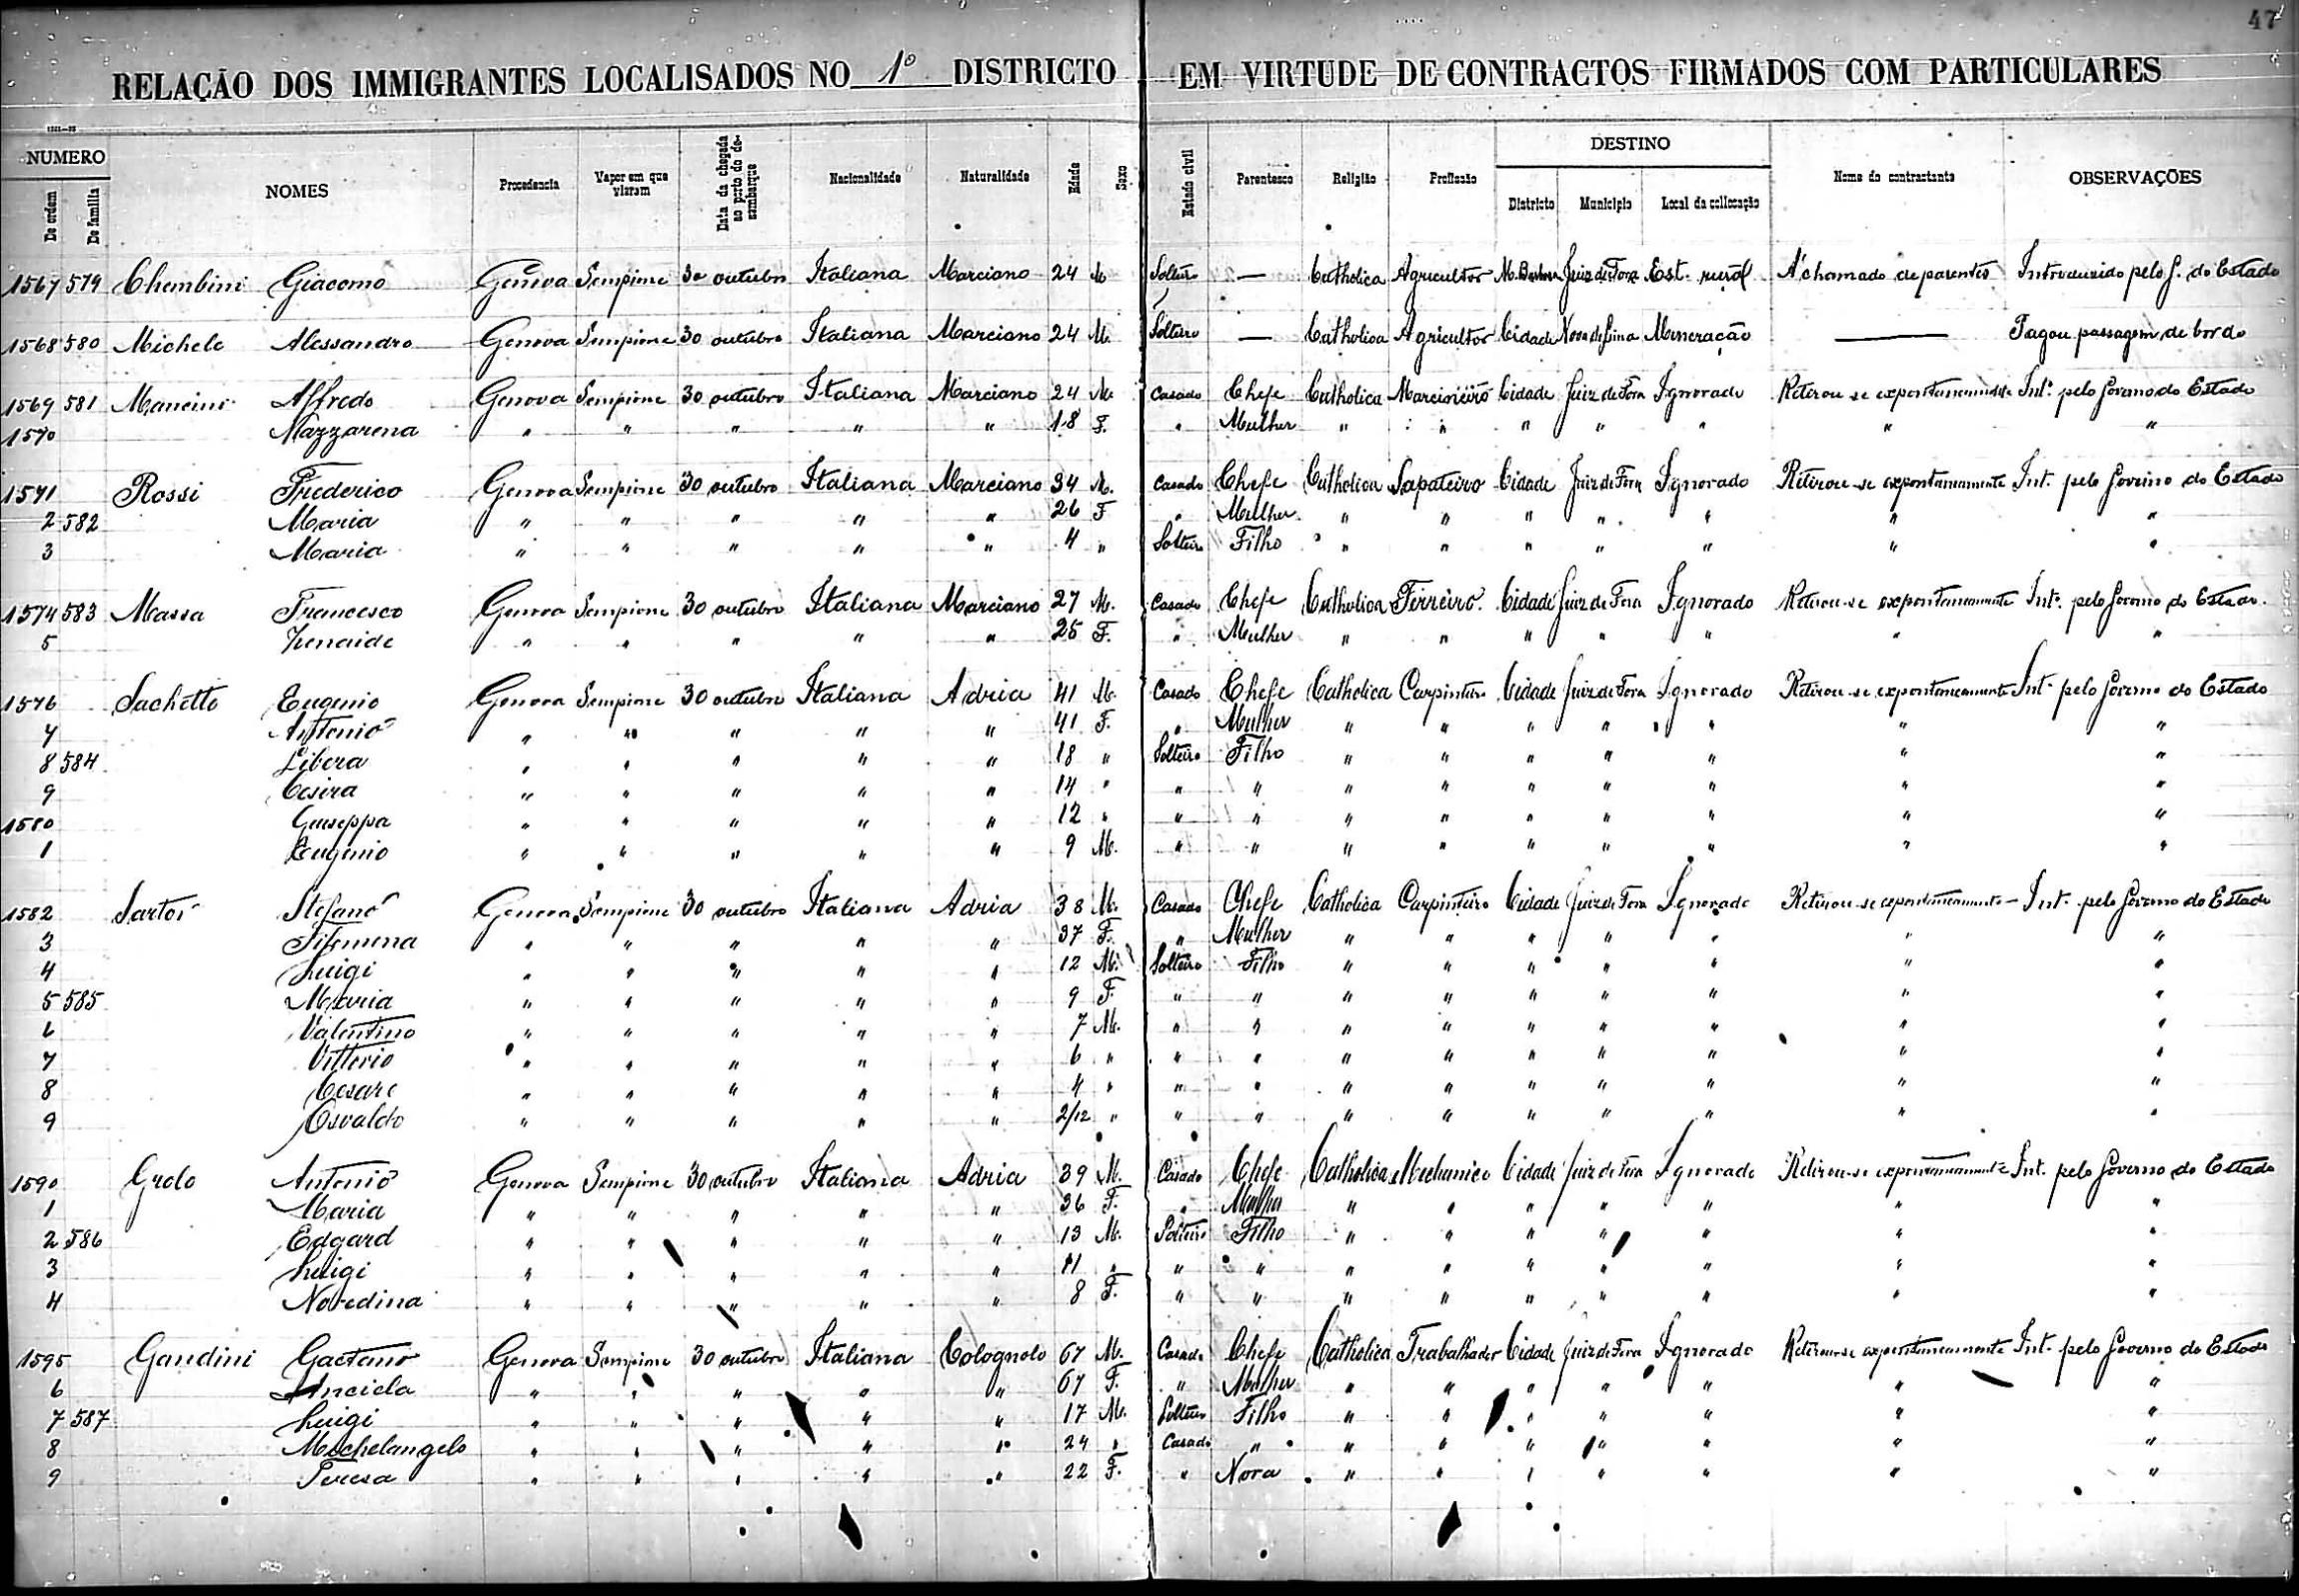 47
RELAÇÃO DOS IMMIGRANTES LOCALISADOS NO 1º DISTRICTO EM VIRTUDE DE CONTRACTOS FIRMADOS COM PARTICULARES
NUMERO
De ordem De familia NOMES Procedencia Vapor em que vieram Data da chegada ao porto do desembarque Nacionalidade Naturalidade Edade Sexo Estado civil Parentesco Religião Profissão DESTINO Districto Municipio Local da collocação Nome do contractante OBSERVAÇÕES
1567 579 Chembini Giacomo Genova Sempione 30 outubro Italiana Marciano 24 M Solteiro — Catholica Agricultor Juiz de Fora Est. rural A chamado de parentes Introduzido pelo G. do Estado
1568 580 Michele Alessandro Genova Sempione 30 outubro Italiana Marciano 24 M. Solteiro — Catholica Agricultor Cidade Nova de Lima Mineração — Pagou passagem de bordo
1569 581 Mancini Alfredo Genova Sempione 30 outubro Italiana Marciano 24 M. Casado Chefe Catholica Marcineiro Cidade Juiz de Fora Ignorado Retirou-se expontaneamente Int. pelo Governo do Estado
1570 Nazzarena " " " " " 18 F. " Mulher " " " " " " "
1571 Rossi Frederico Genova Sempione 30 outubro Italiana Marciano 34 M. Casado Chefe Catholica Sapateiro Cidade Juiz de Fora Ignorado Retirou-se expontaneamente Int. pelo Governo do Estado
2 582 Maria " " " " " 26 F " Mulher " " " " " " "
3 Maria " " " " " 4 " Solteiro Filho " " " " " " "
1574 583 Massa Francesco Genova Sempione 30 outubro Italiana Marciano 27 M. Casado Chefe Catholica Ferreiro. Cidade Juiz de Fora Ignorado Retirou-se expontaneamente Int. pelo Governo do Estado.
5 Zenaide " " " " " 25 F. " Mulher " " " " " " "
1576 Sachetto Eugenio Genova Sempione 30 outubro Italiana Adria 41 M. Casado Chefe Catholica Carpinteiro Cidade Juiz de Fora Ignorado Retirou-se expontaneamente Int. pelo Governo do Estado
7 Antonio " " " " " 41 F. " Mulher " " " " " " "
8 584 Libera " " " " " 18 " Solteiro Filho " " " " " " "
9 Cesira " " " " " 14 " " " " " " " " " "
1580 Giuseppa " " " " " 12 " " " " " " " " " "
1 Eugenio " " " " " 9 M. " " " " " " " " "
1582 Sartoi Stefano Genova Sempione 30 outubro Italiana Adria 38 M. Casado Chefe Catholica Carpinteiro Cidade Juiz de Fora Ignorado Retirou-se expontaneamente Int. pelo Governo do Estado
3 Filomena " " " " " 37 F. " Mulher " " " " " " "
4 Luigi " " " " " 12 M. Solteiro Filho " " " " " " "
5 585 Maria " " " " " 9 F. " " " " " " " " "
6 Valentino " " " " " 7 M. " " " " " " " " "
7 Vittorio " " " " " 6 " " " " " " " " " "
8 Cesare " " " " " 4 " " " " " " " " " "
9 Osvaldo " " " " " 2/12 " " " " " " " " " "
1590 Grolo Antonio Genova Sempione 30 outubro Italiana Adria 39 M. Casado Chefe Catholica Mechanico Cidade Juiz de Fora Ignorado Retirou-se expontaneamente Int. pelo Governo do Estado
1 Maria " " " " " 36 F. " Mulher " " " " " " "
2 586 Edgard " " " " " 13 M. Solteiro Filho " " " " " " "
3 Luigi " " " " " 11 " " " " " " " " " "
4 Noredina " " " " " 8 F. " " " " " " " " "
1595 Gandini Gaetano Genova Sempione 30 outubro Italiana Colognolo 67 M. Casado Chefe Catholica Trabalhador Cidade Juiz de Fora Ignorado Retirou-se expontaneamente Int. pelo Governo do Estado
6 " " " " " 67 F. " Mulher " " " " " " "
7 587 Luigi " " " " " 17 M. Solteiro Filho " " " " " " "
8 Michelangelo " " " " " 24 " Casado " " " " " " " "
9 Teresa " " " " " 22 F. " Nora " " " " " " "